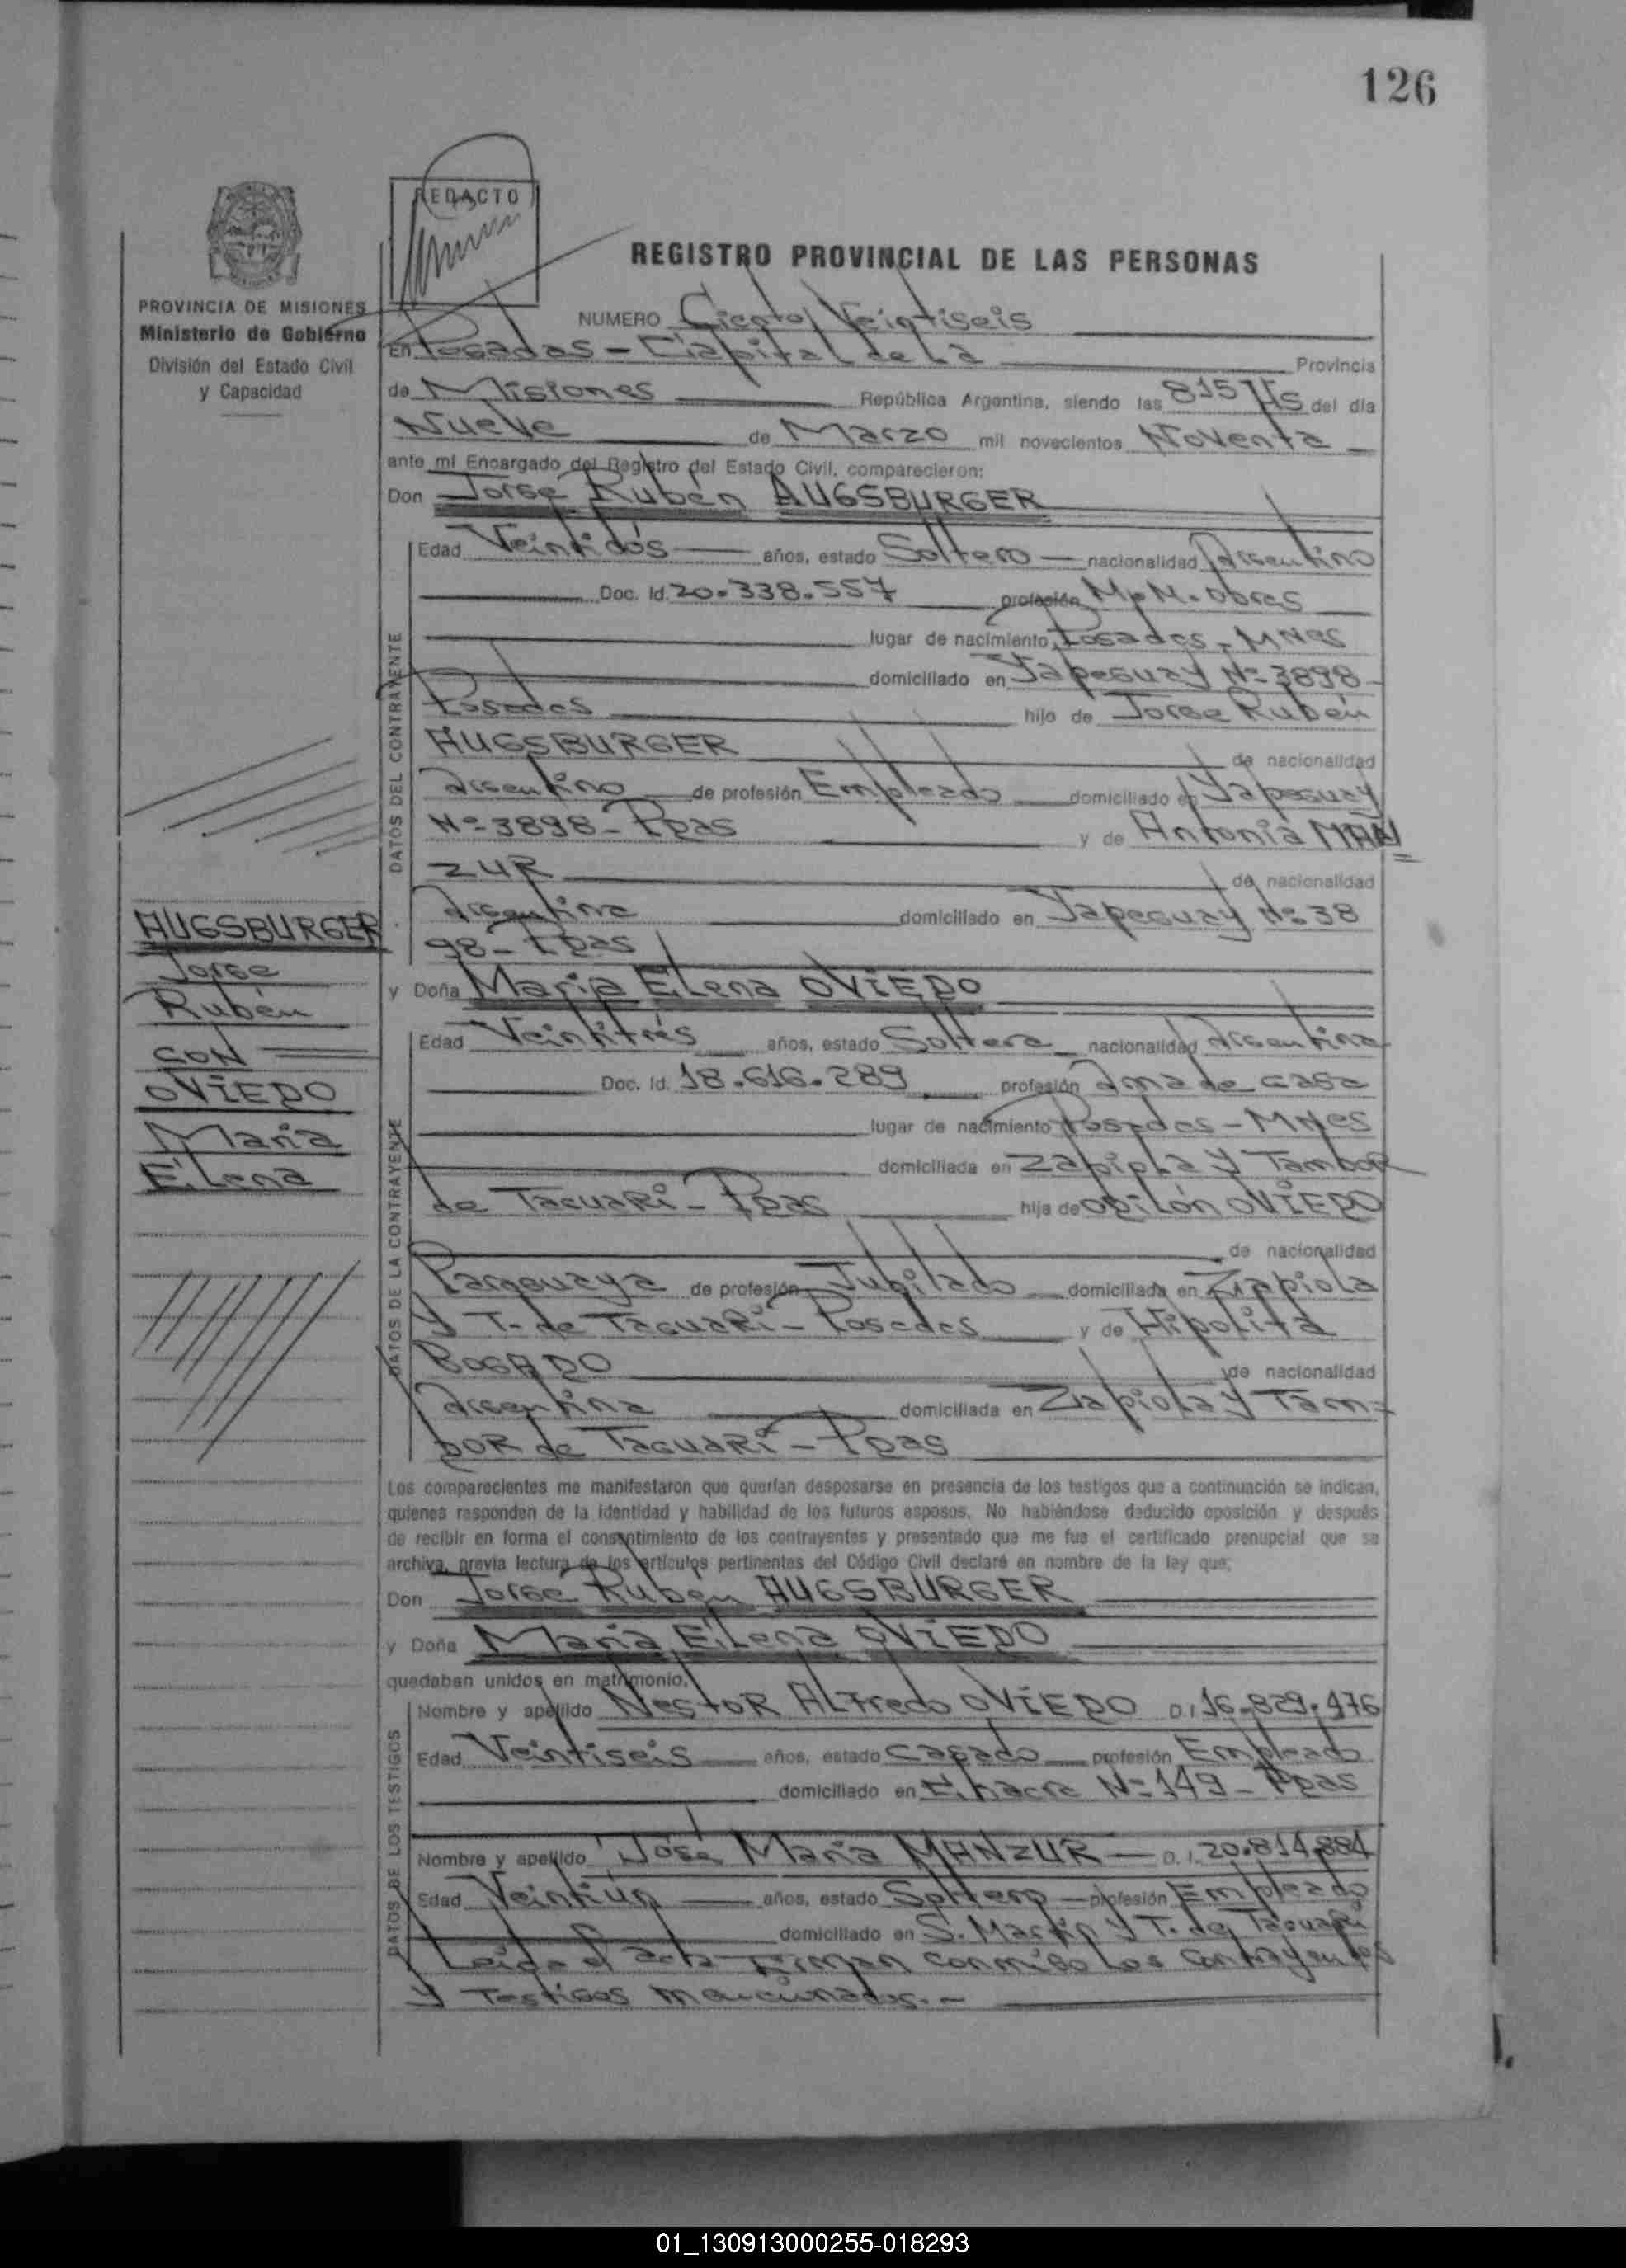 126
REDACTO
PROVINCIA DE MISIONES
Ministerio de Gobierno
División del Estado Civil
y Capacidad
REGISTRO PROVINCIAL DE LAS PERSONAS
NUMERO Ciento Veintiseis
En Posadas - Capital de La Provincia
de Misiones República Argentina, siendo las 815 Hs del día
Nueve de Marzo mil novecientos Noventa
ante mí Encargado del Registro del Estado Civil, comparecieron:
Don Jorge Rubén AUGSBURGER
DATOS DEL CONTRAYENTE
Edad Veintidós años, estado Soltero nacionalidad Argentino
Doc. Id. 20.338.557 profesión M. obras
lugar de nacimiento Posadas - Mnes
domiciliado en Yapeguay Nº 3898
Posadas hijo de Jorge Rubén
AUGSBURGER de nacionalidad
Argentino de profesión Empleado domiciliado en Yapeguay
Nº 3898 - Ppas y de Antonia MAN
ZUR de nacionalidad
Argentina domiciliado en Yapeguay Nº 38
98 - Ppas
y Doña María Elena OVIEDO
DATOS DE LA CONTRAYENTE
Edad Veintitrés años, estado Soltera nacionalidad Argentina
Doc. Id. 18.616.289 profesión ama de casa
lugar de nacimiento Posadas - Mnes
domiciliada en Zapiola y Tambor
de Tacuarí - Ppas hija de OVIEDO
de nacionalidad
Paraguaya de profesión Jubilado domiciliada en Zapiola
y T. de Tacuarí - Posadas y de Hipolita
BOGADO de nacionalidad
Argentina domiciliada en Zapiola y Tam=
bor de Tacuarí - Ppas
Los comparecientes me manifestaron que querían desposarse en presencia de los testigos que a continuación se indican,
quienes responden de la identidad y habilidad de los futuros esposos. No habiéndose deducido oposición y después
de recibir en forma el consentimiento de los contrayentes y presentado que me fue el certificado prenupcial que se
archiva, previa lectura de los artículos pertinentes del Código Civil declaré en nombre de la ley que:
Don Jorge Rubén AUGSBURGER
y Doña María Elena OVIEDO
quedaban unidos en matrimonio.
DATOS DE LOS TESTIGOS
Nombre y apellido Nestor Alfredo OVIEDO D.I 16.829.476
Edad Veintiseis años, estado Casado profesión Empleado
domiciliado en Chacra Nº 149 - Ppas
Nombre y apellido José María MANZUR D.I. 20.814.884
Edad Veintiún años, estado Soltero profesión Empleado
domiciliado en S. Martín y T. de Tacuarí
Leída el acta firman conmigo los contrayentes
y testigos mencionados.-
AUGSBURGER
Jorge
Rubén
CON
OVIEDO
María
Elena
01_130913000255-018293